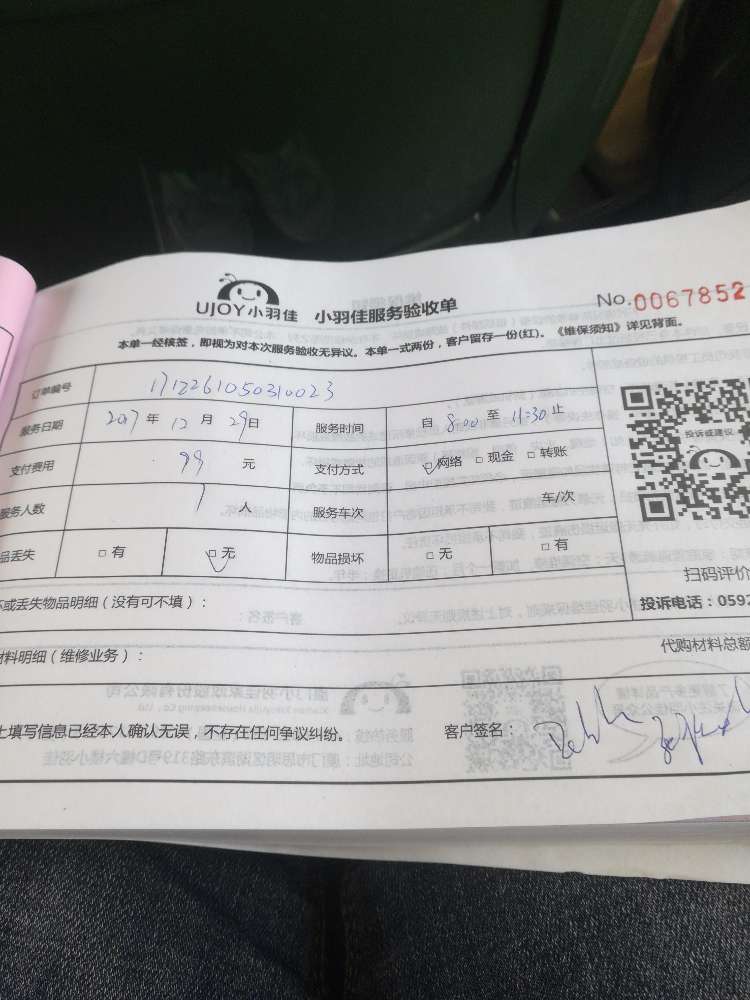 UJOY小羽佳 小羽佳服务验收单 No.0067852
本单一经核签，即视为对本次服务验收无异议。本单一式两份，客户留存一份(红)。《维保须知》详见背面。
订单编号 1712261050310023
服务日期 2017 年 12 月 29 日 服务时间 自 8:00 至 11:30 止
支付费用 99 元 支付方式 网络 □ 现金 □ 转账
服务人数 1 人 服务车次 车/次
品丢失 □ 有 □ 无 物品损坏 □ 无 □ 有
投诉或建议
扫码评价
坏或丢失物品明细（没有可不填）： 投诉电话：0592
材料明细（维修业务）： 代购材料总额
上填写信息已经本人确认无误，不存在任何争议纠纷。 客户签名：